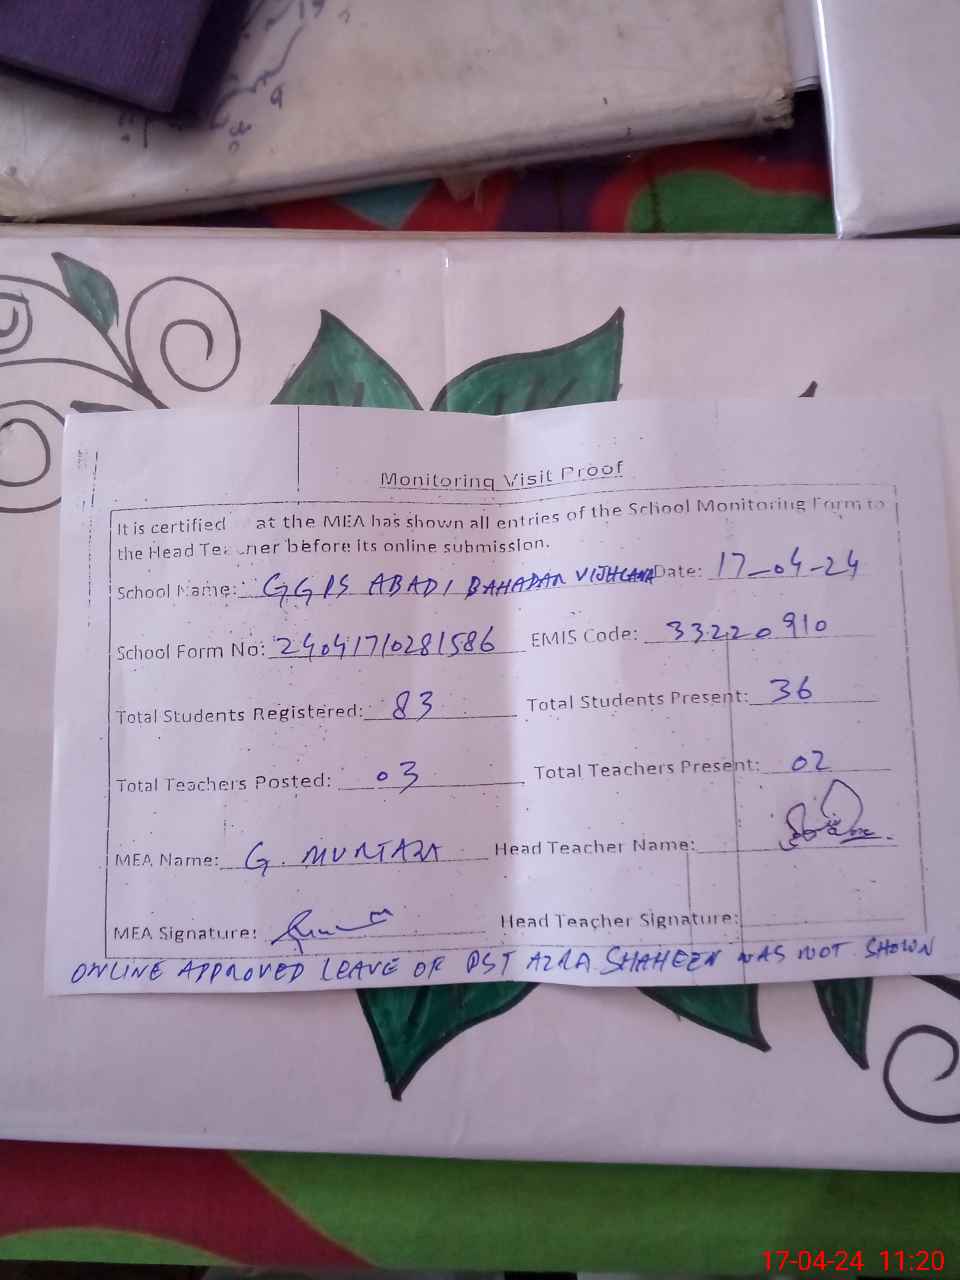 Monitoring Visit Proof
It is certified at the MEA has shown all entries of the School Monitoring Form to
the Head Teacher before its online submission.
School Name: GGPS ABADI BAHADAR Date: 17-04-24
School Form No: 24041710281586 EMIS Code: 33220910
Total Students Registered: 83 Total Students Present: 36
Total Teachers Posted: 03 Total Teachers Present: 02
MEA Name: G. MURTAZA Head Teacher Name:
MEA Signature: Head Teacher Signature:
ONLINE APPROVED LEAVE OF PST AZRA SHAHEEN WAS NOT SHOWN
17-04-24 11:20